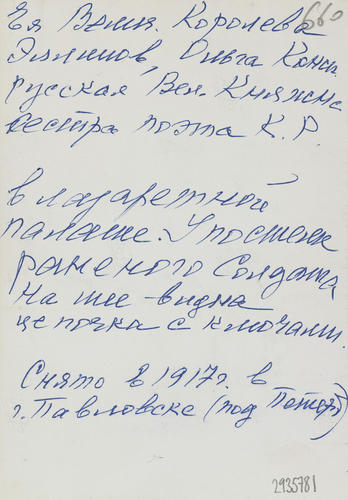 660
Ея Велич. Королева
Эллинов, Ольга Конст.
русская Вел. Княжна
сестра поэта К.Р.
в лазаретной
палате. У постели
раненого Солдата
На шее - видна
цепочка с ключами.
Снято в 1917 г. в
г. Павловске (под Петерб)
2935781